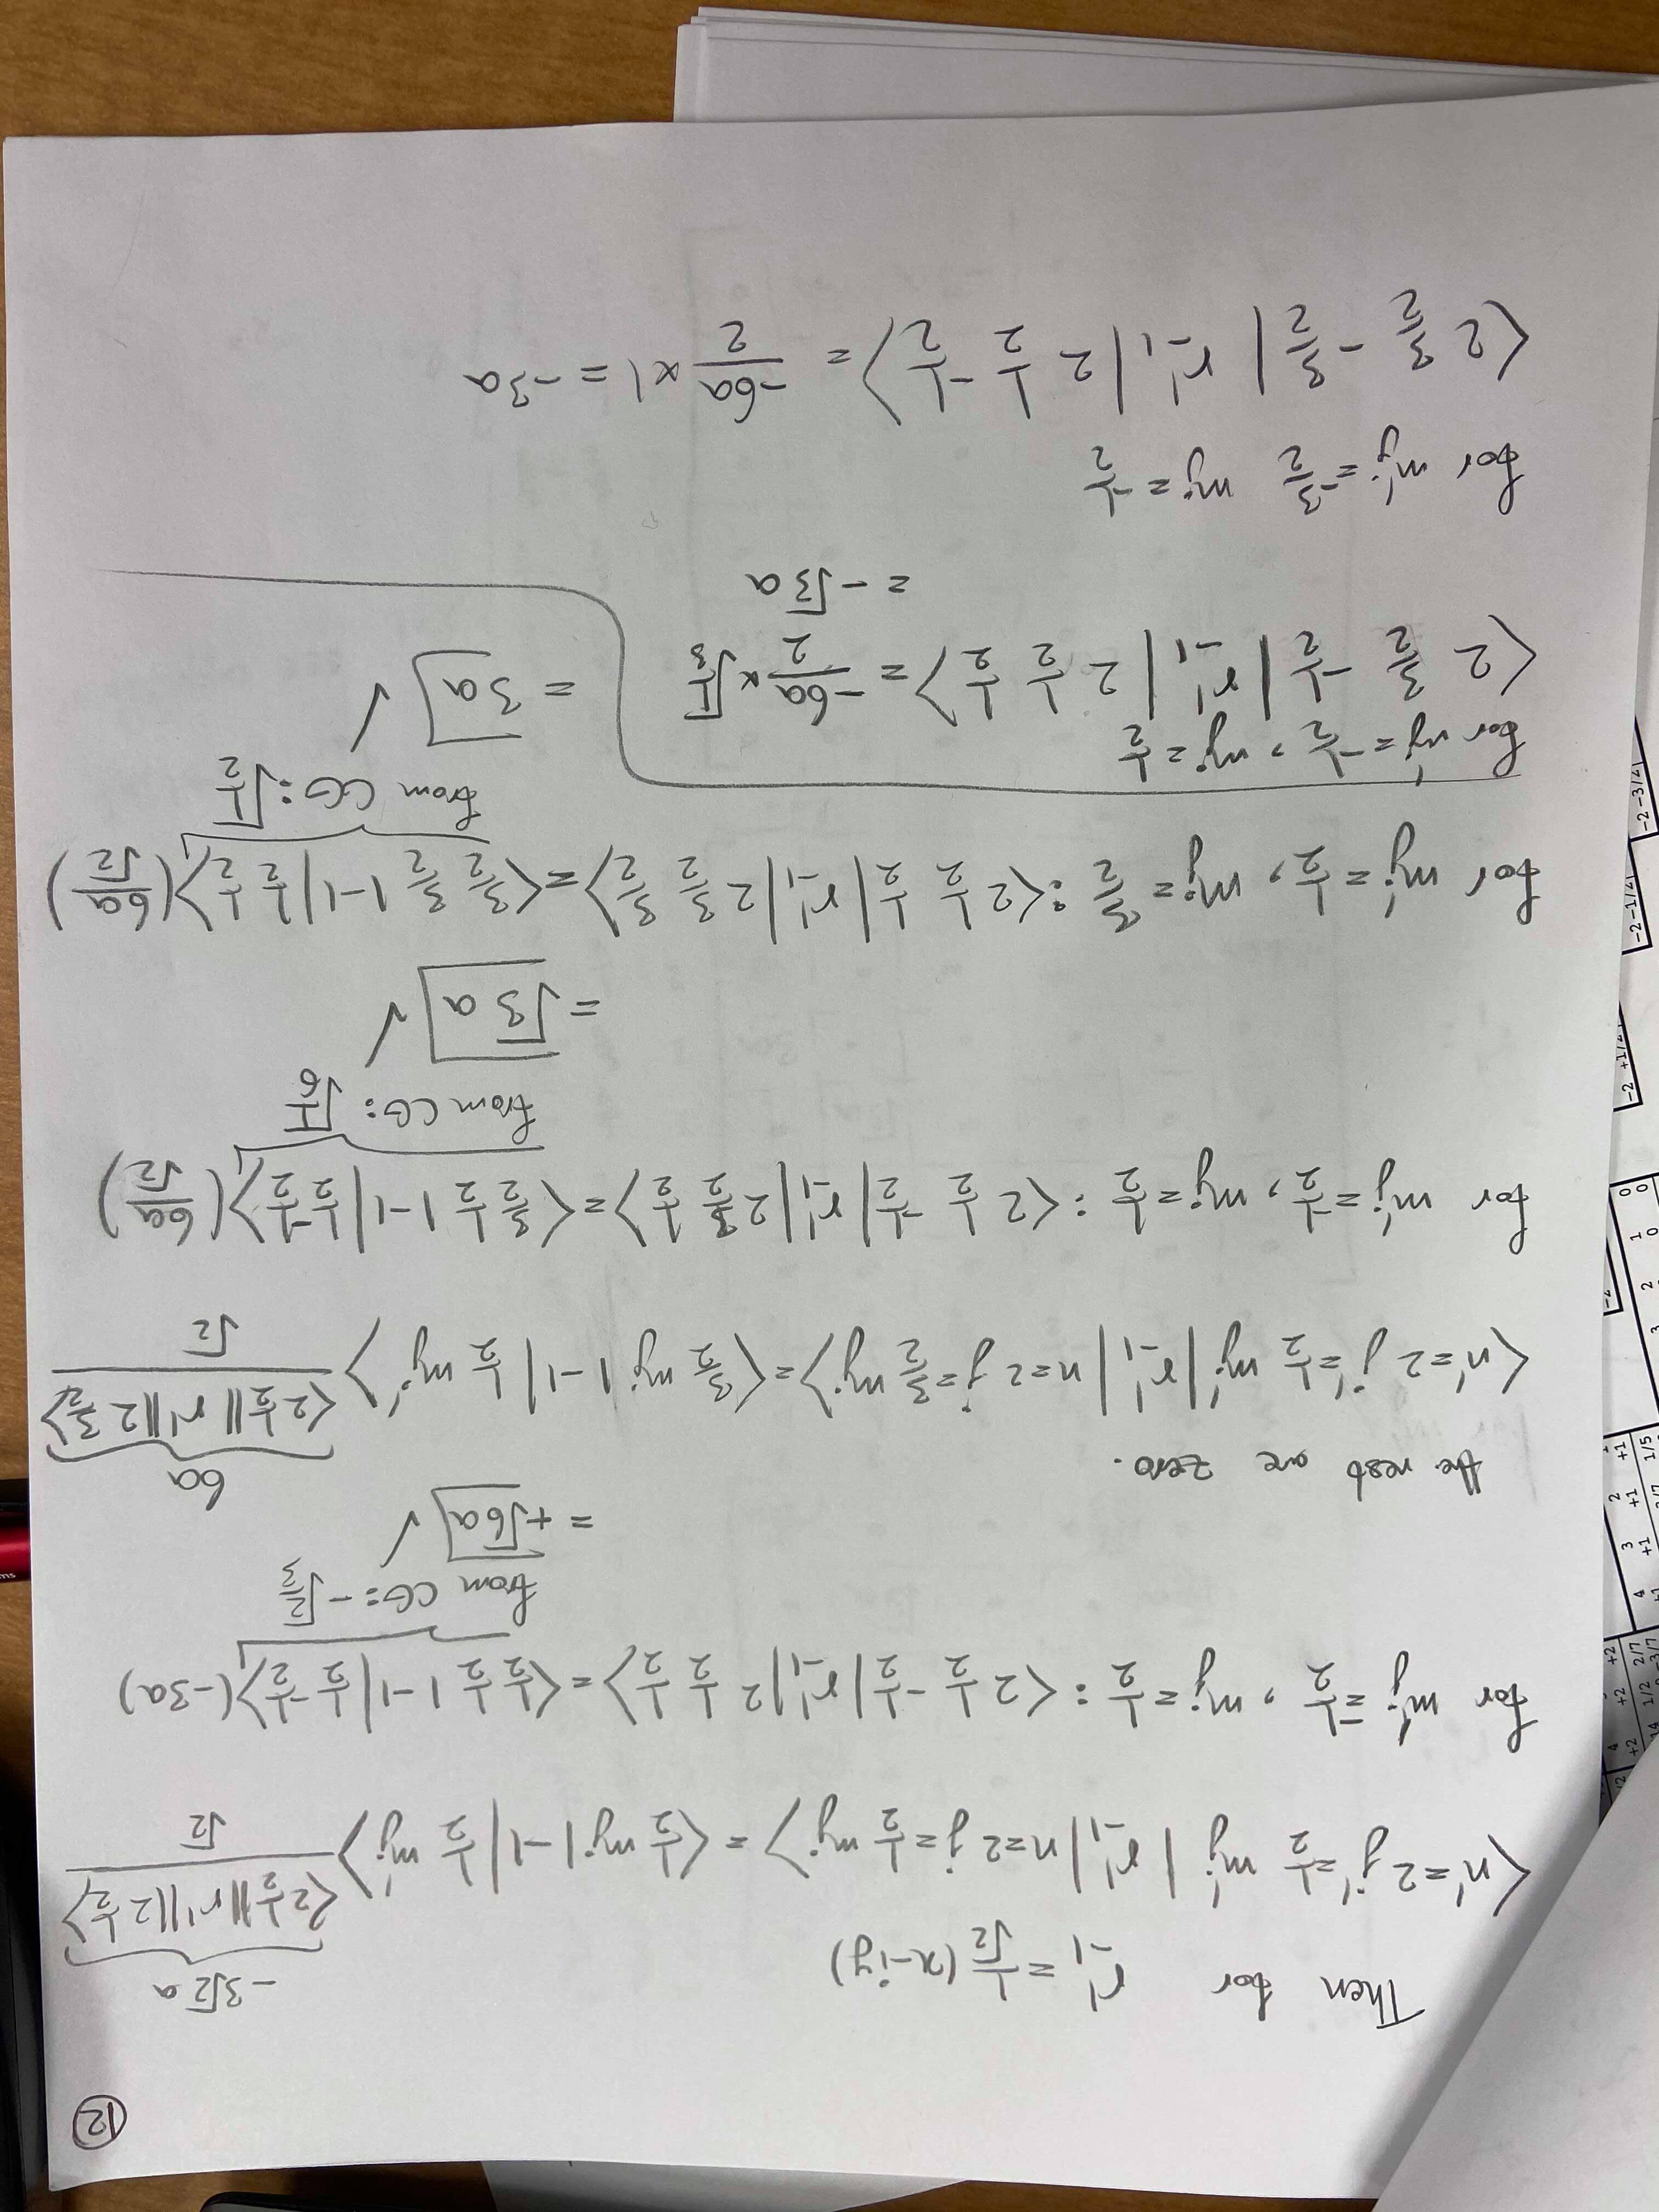 12
Then for r^1_{-1} = 1/√2 (x-iy)
-3√2 a
⟨n'=2 j'=1/2 m_j' | r^1_{-1} | n=2 j=1/2 m_j⟩ = ⟨1/2 m_j 1 -1 | 1/2 m_j'⟩ ⟨2 1/2 || r^1 || 2 1/2⟩ / √2
for m_j' = -1/2, m_j = 1/2 : ⟨2 1/2 -1/2 | r^1_{-1} | 2 1/2 1/2⟩ = ⟨1/2 1/2 1 -1 | 1/2 -1/2⟩ (-3a)
from CG: -√(2/3)
= +√6 a ✓
the rest are zero.
6a
⟨n'=2 j'=1/2 m_j' | r^1_{-1} | n=2 j=3/2 m_j⟩ = ⟨3/2 m_j 1 -1 | 1/2 m_j'⟩ ⟨2 1/2 || r^1 || 2 3/2⟩ / √2
for m_j' = -1/2, m_j = 1/2 : ⟨2 1/2 -1/2 | r^1_{-1} | 2 3/2 1/2⟩ = ⟨3/2 1/2 1 -1 | 1/2 -1/2⟩ (6a/√2)
from CG: √(1/6)
= √3 a ✓
for m_j' = 1/2, m_j = 3/2 : ⟨2 1/2 1/2 | r^1_{-1} | 2 3/2 3/2⟩ = ⟨3/2 3/2 1 -1 | 1/2 1/2⟩ (6a/√2)
from CG: √(1/2)
= 3a ✓
for m_j' = -1/2, m_j = 1/2
⟨2 3/2 -1/2 | r^1_{-1} | 2 1/2 1/2⟩ = -6a/2 × √(1/3)
= -√3 a
for m_j' = -3/2 m_j = -1/2
⟨2 3/2 -3/2 | r^1_{-1} | 2 1/2 -1/2⟩ = -6a/2 × 1 = -3a